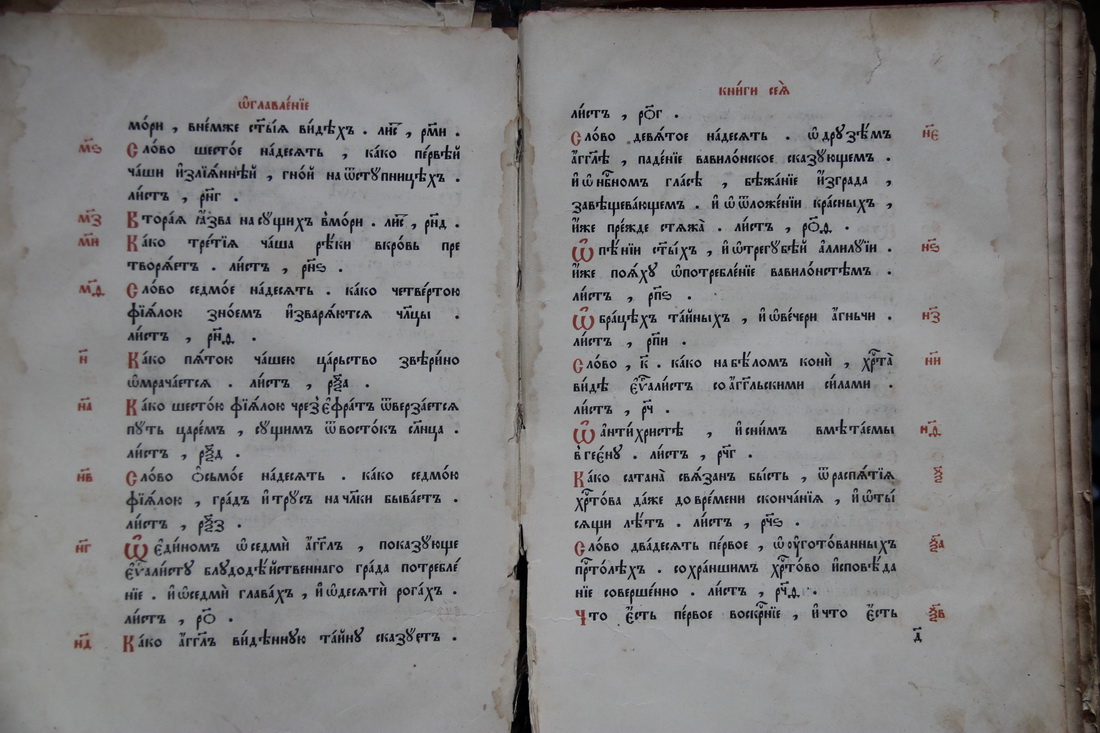 ѡ҆главле́нїе
мо́ри , внемже ст҃ы́ѧ ви́дѣхъ . лис҇ , рм҃и .
м҃ѕ Сло́во шесто́е на́десѧть , ка́ко пе́рвѣй
ча́ши и҆злїѧ́ннѣй , гно́й на ѿстꙋ́пницѣхъ .
ли́стъ , рн҃г .
м҃з Втора́ѧ ꙗ҆́зва на сꙋ́щихъ в̾мо́ри . лис҇ , рн҃д .
м҃и Ка́ко тре́тїѧ ча́ша рѣ́ки вкро́вь пре
творѧ́етъ . ли́стъ , рн҃ѕ .
м҃ѳ Сло́во седмо́е на́десѧть . ка́ко четве́ртою
фїѧ́лою зно́емъ и҆зварѧ́ютсѧ чл҃цы .
ли́стъ , рн҃ѳ .
н҃ Ка́ко пѧ́тою ча́шею ца́рьство звѣ́рино
ѡ҆мрача́етсѧ . ли́стъ , рѯ҃а .
н҃а Ка́ко шесто́ю фїѧ́лою чрез̾ є҆фра́тъ ѿверза́етсѧ
пꙋ́ть царе́мъ , сꙋ́щимъ ѿ восто́къ сл҃нца .
ли́стъ , рѯ҃д .
н҃в Сло́во ѻ҆сьмо́е на́десѧть . ка́ко седмо́ю
фїѧ́лою , гра́дъ и҆ трꙋ́съ на чл҃ки быва́етъ .
ли́стъ , рѯ҃з .
н҃г Ѡ҆ є҆ди́номъ ѡ҆ седми̑ а҆́гг҃лъ , показꙋ́юще
є҆ѵⷢ҇али́стꙋ блꙋдодѣ́йственнаго гра́да потребле́
нїе . и҆ ѡ҆ седми̑ глава́хъ , и҆ ѡ҆ десѧти̑ рога́хъ .
ли́стъ , ро҃ .
н҃д Ка́ко а҆́гг҃лъ ви́дѣннꙋю та́йнꙋ сказꙋ́етъ .
кни́ги сеѧ̀
ли́стъ , ро҃г .
Сло́во девѧ́тое на́десѧть . ѡ҆ дрꙋзѣ́мъ н҃є
а҆́гг҃лѣ , паде́нїе вавило́нское сказꙋ́ющемъ .
и҆ ѡ҆ нб҃номъ гла́сѣ , бѣжа́нїе и҆згра́да ,
завѣщева́ющемъ . и҆ ѡ҆ ѿложе́нїи кра́сныхъ ,
и҆́же пре́жде стѧжа̀ . ли́стъ , ро҃ѳ .
Ѡ҆ пѣ́нїи ст҃ы́хъ , и҆ ѡ҆ трегꙋ́бѣй аллилꙋ́їи . н҃ѕ
и҆́же поѧ́хꙋ ѡ҆ потребле́нїе вавило́нстѣмъ .
ли́стъ , рп҃ѕ .
Ѡ҆ бра́цѣхъ та́йныхъ , и҆ ѡ҆ ве́чери а҆́гньчи . н҃з
ли́стъ , рп҃и .
Сло́во , к҃ . ка́ко на бѣ́ломъ кони̑ , хрⷭ҇та̀ н҃и
ви́дѣ є҆ѵⷢ҇али́стъ со а҆́гг҃льскими си́лами .
ли́стъ , рч҃ .
Ѡ҆ анти́христѣ , и҆ сни́мъ вмѣта́емы н҃ѳ
в̾гее́нꙋ . ли́стъ , рч҃г .
Ка́ко сатана̀ свѧ́занъ бы́сть , ѿ распѧ́тїѧ ѯ҃
хрⷭ҇то́ва да́же до вре́мени сконча́нїѧ , и҆ ѡ҆ ты́
сѧщи лѣ́тъ . ли́стъ , рч҃ѕ .
Сло́во два́десѧть пе́рвое , ѡ҆ оу҆гото́ванныхъ ѯ҃а
прⷭ҇то́лѣхъ . сохра́ншимъ хрⷭ҇то́во и҆сповѣ́да
нїе соверше́нно . ли́стъ , рч҃ѳ .
Что̀ є҆́сть пе́рвое воскрⷭ҇нїе , и҆ что̀ є҆́сть ѯ҃в
д҃